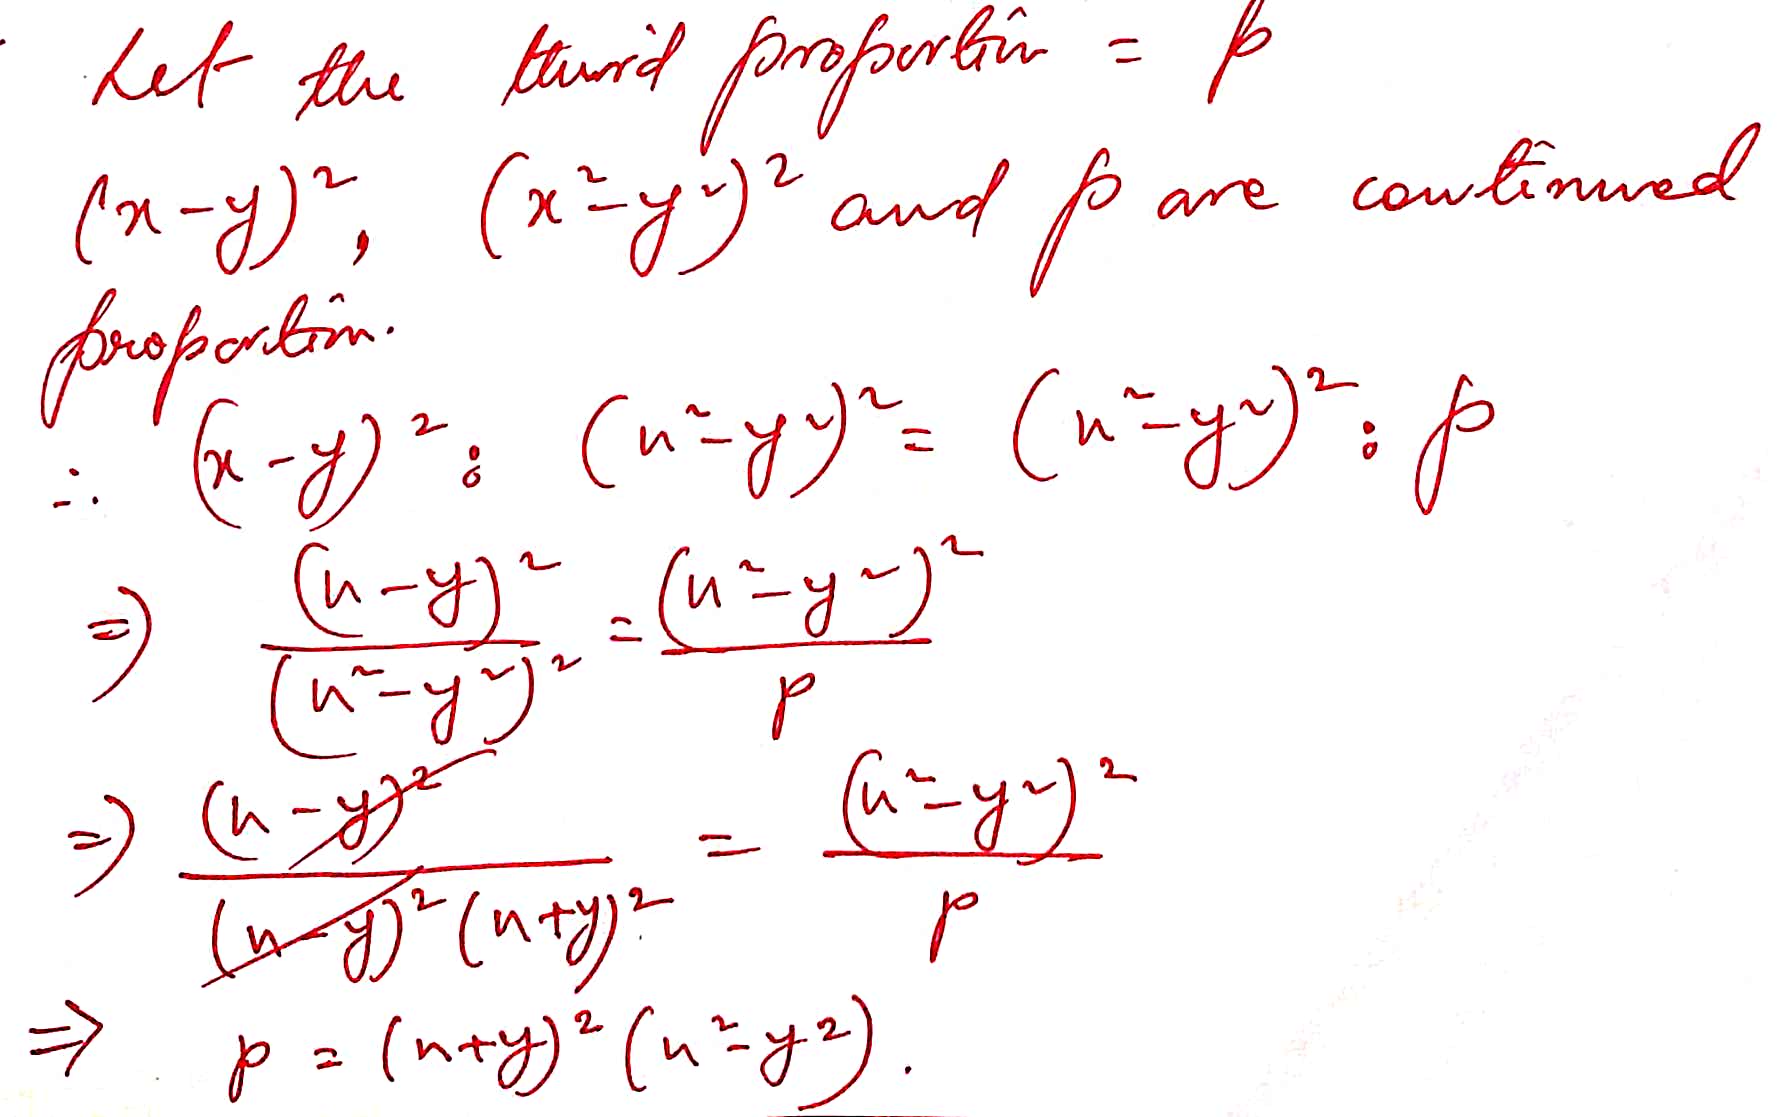 Let the third proportion = p
(x-y)², (x²-y²)² and p are continued
proportion.
∴ (x-y)² : (x²-y²)² = (x²-y²)² : p
⇒ (x-y)² / (x²-y²)² = (x²-y²)² / p
⇒ (x-y)² / (x-y)² (x+y)² = (x²-y²)² / p
⇒ p = (x+y)² (x²-y²).